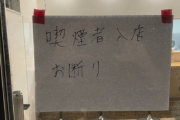 喫煙者入店
お断り